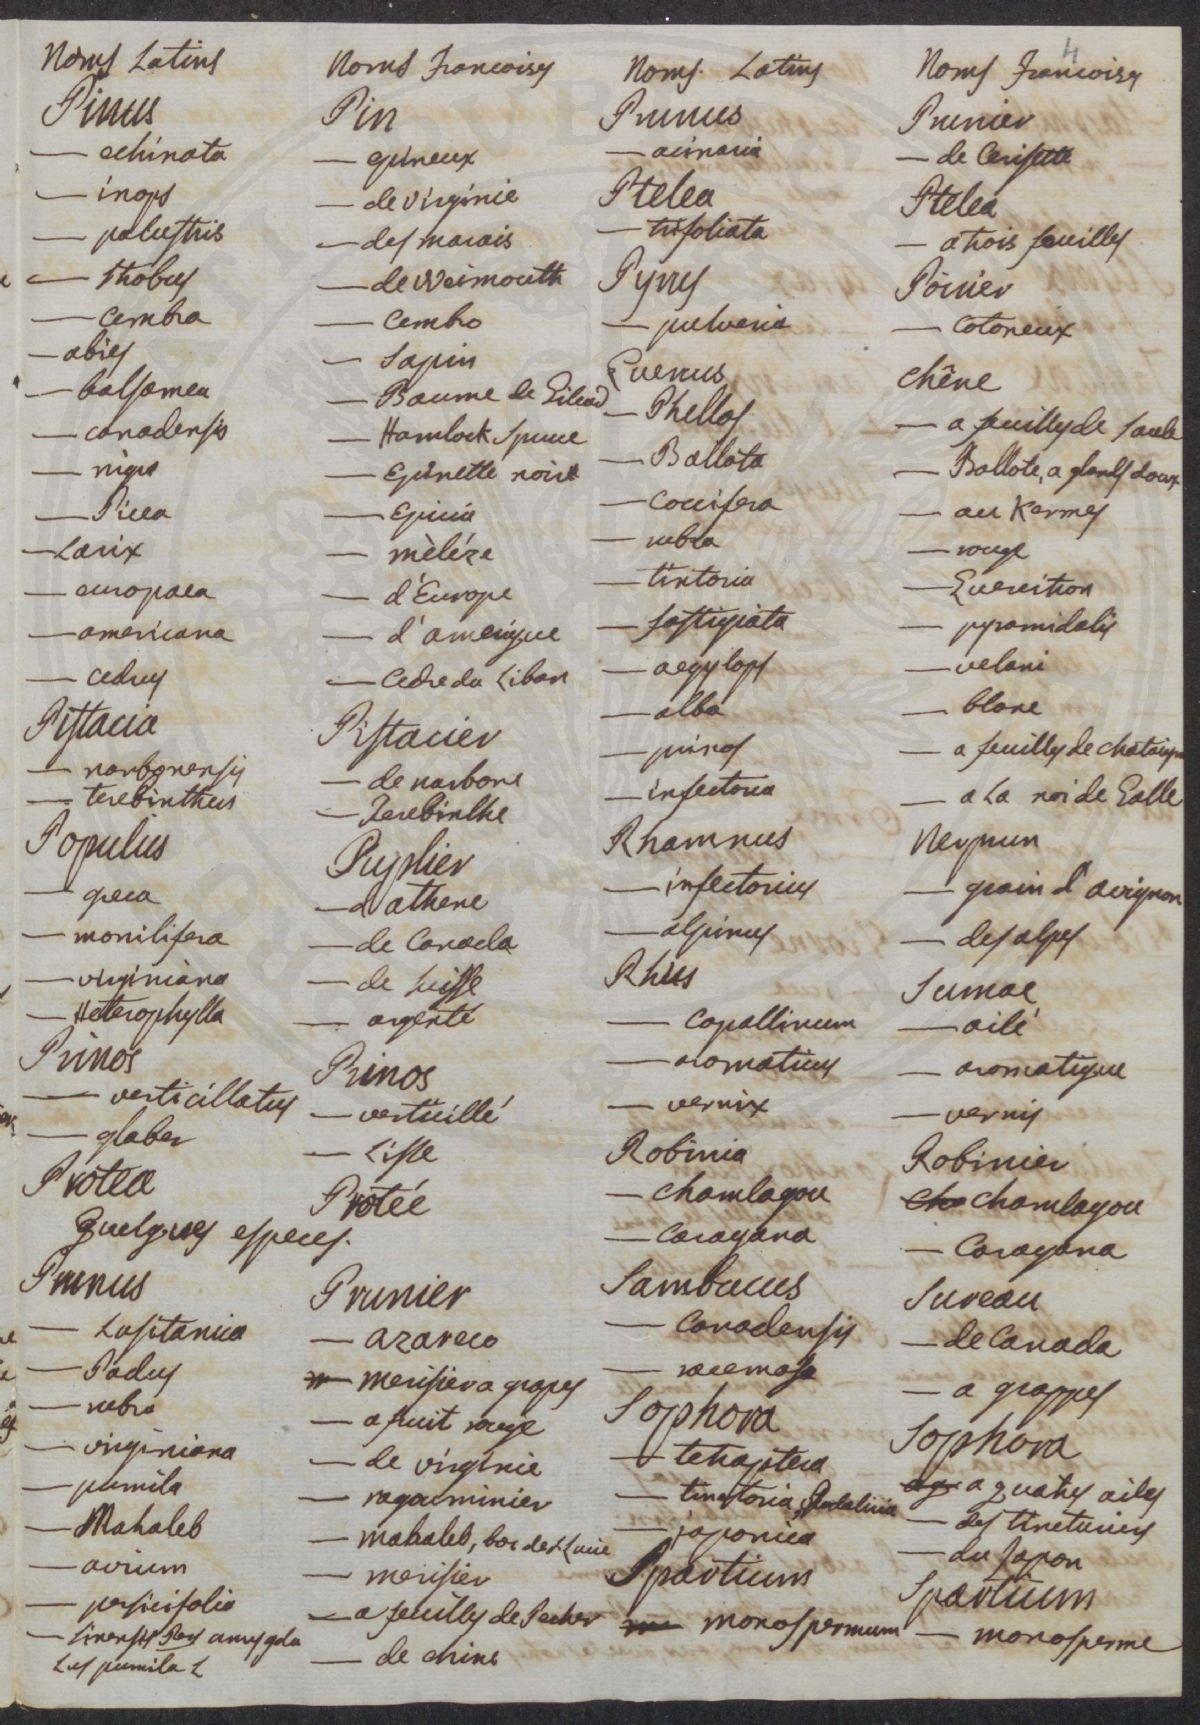 4
Noms Latins
Pinus
— echinata
— inops
— palustris
— Strobus
— Cembra
— abies
— balsamea
— canadensis
— nigra
— Picea
— Larix
— europaea
— americana
— cedrus
Pistacia
— narbonensis
— terebinthus
Populus
— greca
— monilifera
— virginiana
— Heterophylla
Prinos
— verticillatus
— glaber
Protea
Quelques especes.
Prunus
— Lusitanica
— Padus
— rubra
— virginiana
— pumila
— Mahaleb
— avium
— persicifolia
— Sinensis Pers amygdalus pumila L
Noms Francoises
Pin
— epineux
— de virginie
— des marais
— de Weimouth
— Cembro
— Sapin
— Baume de Gilead
— Hamlock Spruce
— Epinette noire
— Epicia
— mèléze
— d'Europe
— d'amerique
— Cedre du Liban
Pistacier
— de narbone
— Terebinthe
Puplier
— d'athene
— de Canada
— de Suisse
— argenté
Prinos
— verticillé
— Lisse
Protée
Prunier
— azareco
— merisier a grapes
— a fruit rouge
— de virginie
— ragouminier
— mahaleb, bois de St Lucie
— merisier
— a feuilles de Pecher
— de chine
Noms. Latins
Prunus
— acinaria
Ptelea
— trifoliata
Pyrus
— pulveria
Quercus
— Phellos
— Ballota
— Coccifera
— rubra
— tinctoria
— fastigiata
— aegylops
— alba
— prinos
— infectoria
Rhamnus
— infectorius
— alpinus
Rhus
— Copallinum
— aromaticus
— vernix
Robinia
— chamlagou
— Caragana
Sambucus
— Canadensis
— racemosa
Sophora
— tetraptera
— tinctoria,
— japonica
Spartium
— monospermum
Noms Francoises
Prunier
— de Cerisette
Ptelea
— a trois feuilles
Poirier
— Cotoneux
chêne
— a feuilles de Saule
— Ballote, a glands doux
— au Kermes
— rouge
— Quercitron
— pyramidalis
— velani
— blanc
— a feuilles de chataigner
— a La noi de Galle
Nerprun
— grain d'avignon
— des alpes
Sumac
— ailé
— aromatique
— vernis
Robinier
Cha chamlagou
— Caragana
Sureau
— de Canada
— a grappes
Sophora
a quatres ailes
— des tincturies
— du Japon
Spartium
— monosperme